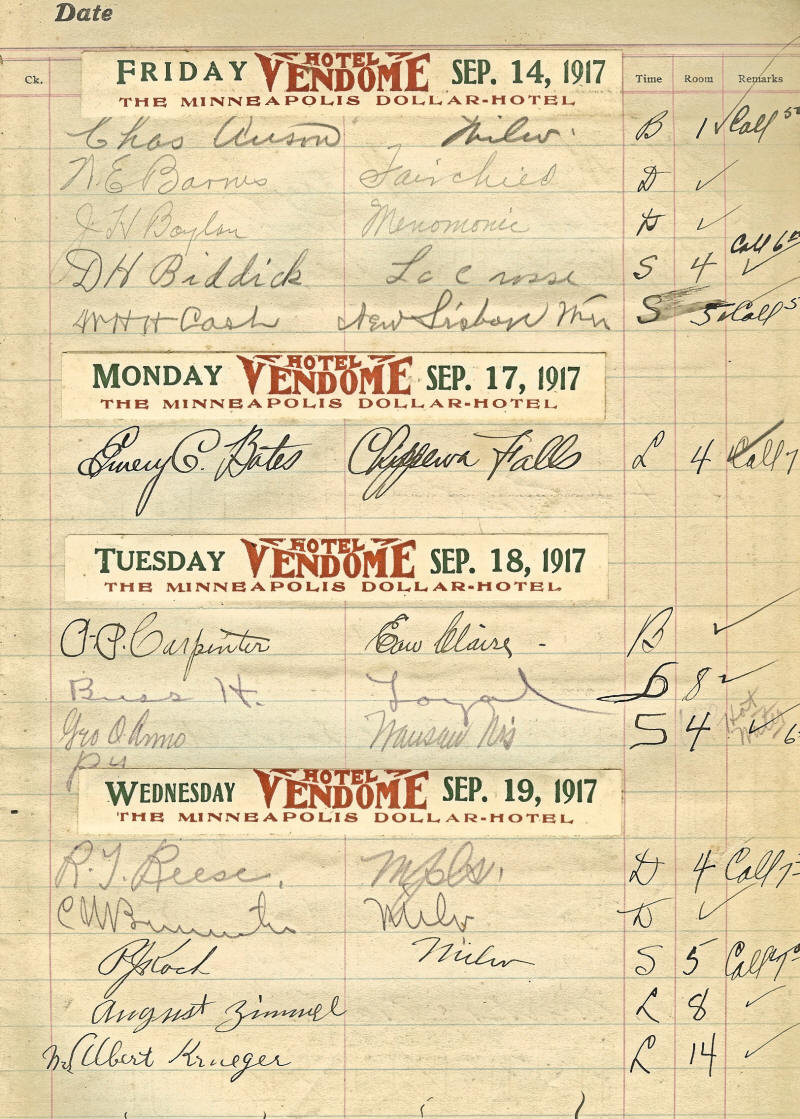 Date
Ck. Time Room Remarks
FRIDAY HOTEL VENDOME SEP. 14, 1917
THE MINNEAPOLIS DOLLAR-HOTEL
Chas Anson Milw. B 1 ✓ Call 5
N. E Barnes Fairchied D ✓
J H Boylan Menomonie D ✓
D H Biddick La Crosse S 4 ✓ Call 6
W H H Cash New Lisbon Wis S 5 ✓ Call 5
MONDAY HOTEL VENDOME SEP. 17, 1917
THE MINNEAPOLIS DOLLAR-HOTEL
Emery C. Bates Chippewa Falls L 4 ✓ Call 7
TUESDAY HOTEL VENDOME SEP. 18, 1917
THE MINNEAPOLIS DOLLAR-HOTEL
A. P. Carpenter Eau Claire - B ✓
Buss H. Loyal S 8 ✓
Geo O Anno Wausau Wis S 4 ✓ Hot 6
WEDNESDAY HOTEL VENDOME SEP. 19, 1917
THE MINNEAPOLIS DOLLAR-HOTEL
R. J. Reese. Mpls. D 4 Call 7
C Milw D ✓
P J Koch Milw S 5 Call 7
August Zimmel L 8 ✓
Mrs Albert Krueger L 14 ✓